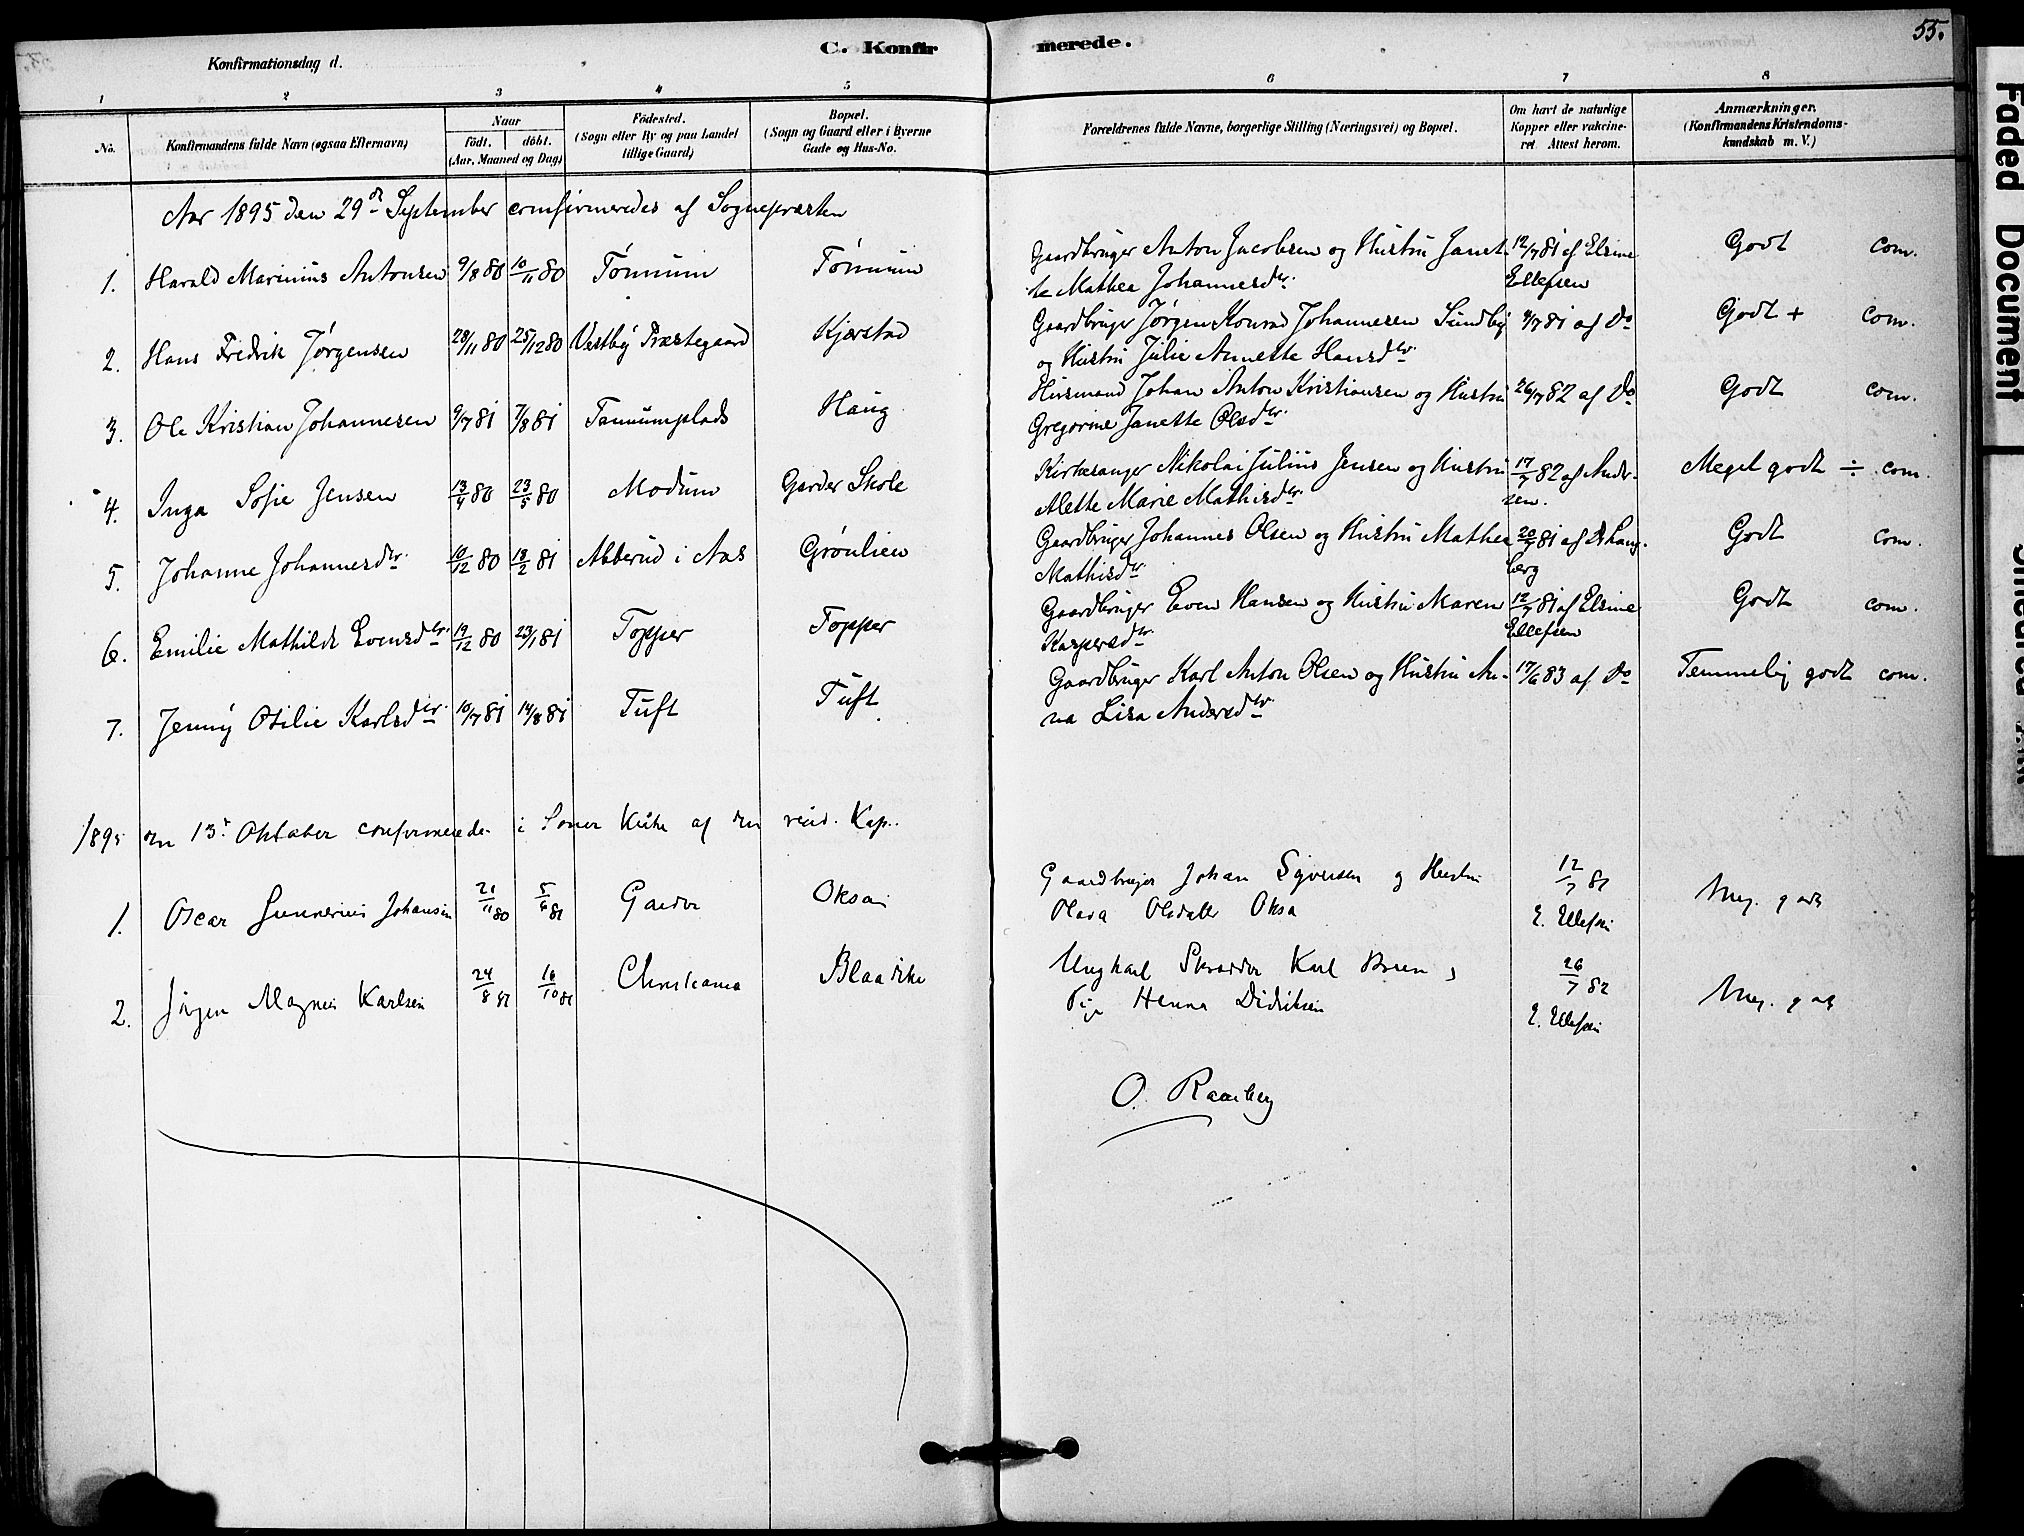 55.
C. Konfirmerede.
Konfirmationsdag d.
1 2 3 4 5 6 7 8
No. Konfirmandens fulde Navn (ogsaa Efternavn) Naar født. døbt. (Aar, Maaned og Dag) Födested. (Sogn eller By og paa Landet tillige Gaard) Bopæl. (Sogn og Gaard eller i Byerne Gade og Hus-No. Forældrenes fulde Navne, borgerlige Stilling (Næringsvei) og Bopæl. Om havt de naturlige Kopper eller vakcineret. Attest herom. Anmærkninger. (Konfirmandens Kristendomskundskab m. V.)
Aar 1895 den 29de September confirmeredes af Sognepræsten
1. Harald Marinius Antonsen 9/8 80 10/11 80 Tønnum Tønnum Gaardbruger Anton Jacobsen og Hustru Janet- 12/7 81 af Elsine Godt com.
te Mathea Johannesdtr. Ellefsen
2. Hans Fredrik Jørgensen 28/11 80 25/12 80 Vestby Præstegaard Kjærstad Gaardbruger Jørgen Konrad Johannesen Sundby 9/7 81 af Do Godt + com.
og Hustru Julie Annette Hansdtr.
3. Ole Kristian Johannesen 9/7 81 7/8 81 Tannumplads Haug Husmand Johan Anton Kristiansen og Hustru 26/7 82 af Do Godt com.
Gregorine Janette Olsdtr.
4. Inga Sofie Jensen 13/4 80 23/5 80 Modum Garder Skole Kirkesanger Nikolai Julius Jensen og Hustru 17/7 82 af Ander- Meget godt ÷ com.
Alette Marie Mathisdtr. sen.
5. Johanne Johannesdtr. 10/12 80 13/2 81 Abberud i Aas Grønlien Gaardbruger Johannes Olsen og Hustru Mathea 20/7 81 af Dr. Lang- Godt com.
Mathisdtr. berg
6. Emilie Mathilde Evensdtr. 19/12 80 23/1 81 Topper Topper Gaardbruger Even Hansen og Hustru Maren 12/7 81 af Elsine Godt com.
Kaspersdtr. Ellefsen
7. Jenny Otilie Karlsdtr. 10/7 81 14/8 81 Tuft Tuft Gaardbruger Karl Anton Olsen og Hustru An- 17/6 83 af Do Temmelig godt com.
na Lisa Andersdtr.
1895 den 13de Oktober confirmerede i Soner Kirke af den resid. Kap.
1. Oscar Gunnerius Johansen 21/11 80 5/6 81 Garder Oksa Gaardbruger Johan Syversen og Hustru 12/7 81 Meg. godt
Olava Olsdatter Oksa E. Ellefsen
2. Jørgen Magnus Karlsen 24/8 81 16/10 81 Christiania Ungkarl Skrædder Karl 26/7 82 Meg. godt
Pige Hanna Didriksen E. Ellefsen
O. Raasberg
Faded Document